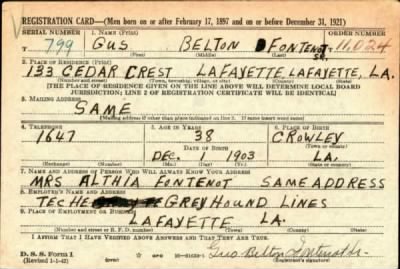 REGISTRATION CARD—(Men born on or after February 17, 1897 and on or before December 31, 1921)
SERIAL NUMBER 1. NAME (Print) ORDER NUMBER
799 GUS BELTON FONTENOT SR. 11,024
2. PLACE OF RESIDENCE (Print)
133 CEDAR CREST LAFAYETTE, LAFAYETTE, LA.
(Number and street) (Town, township, village, or city) (County) (State)
[THE PLACE OF RESIDENCE GIVEN ON THE LINE ABOVE WILL DETERMINE LOCAL BOARD
JURISDICTION; LINE 2 OF REGISTRATION CERTIFICATE WILL BE IDENTICAL]
3. MAILING ADDRESS
SAME
[Mailing address if other than place indicated on line 2. If same insert word same]
4. TELEPHONE 5. AGE IN YEARS 6. PLACE OF BIRTH
1647 38 CROWLEY
DATE OF BIRTH (Town or county)
DEC. 1903 LA.
(Exchange) (Number) (Mo.) (Day) (Yr.) (State or country)
7. NAME AND ADDRESS OF PERSON WHO WILL ALWAYS KNOW YOUR ADDRESS
MRS ALTHIA FONTENOT SAME ADDRESS
8. EMPLOYER'S NAME AND ADDRESS
TECHE GREYHOUND LINES
9. PLACE OF EMPLOYMENT OR BUSINESS
LAFAYETTE LA.
(Number and street or R. F. D. number) (Town) (County) (State)
I AFFIRM THAT I HAVE VERIFIED ABOVE ANSWERS AND THAT THEY ARE TRUE.
D. S. S. Form 1
(Revised 1-1-42) (over) Gus Belton Fontenot Sr.
(Registrant's signature)